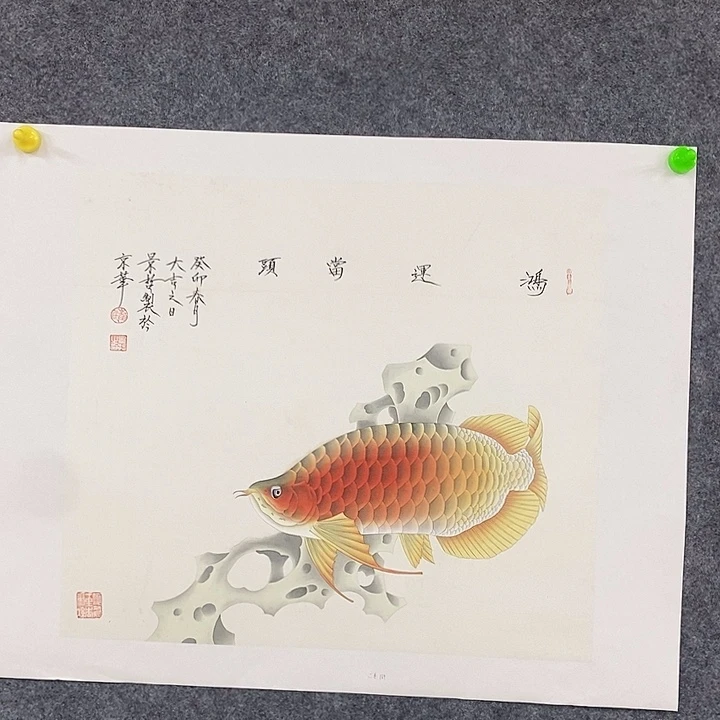 鴻運當頭
癸卯春月
大吉之日
景哲製於
京華